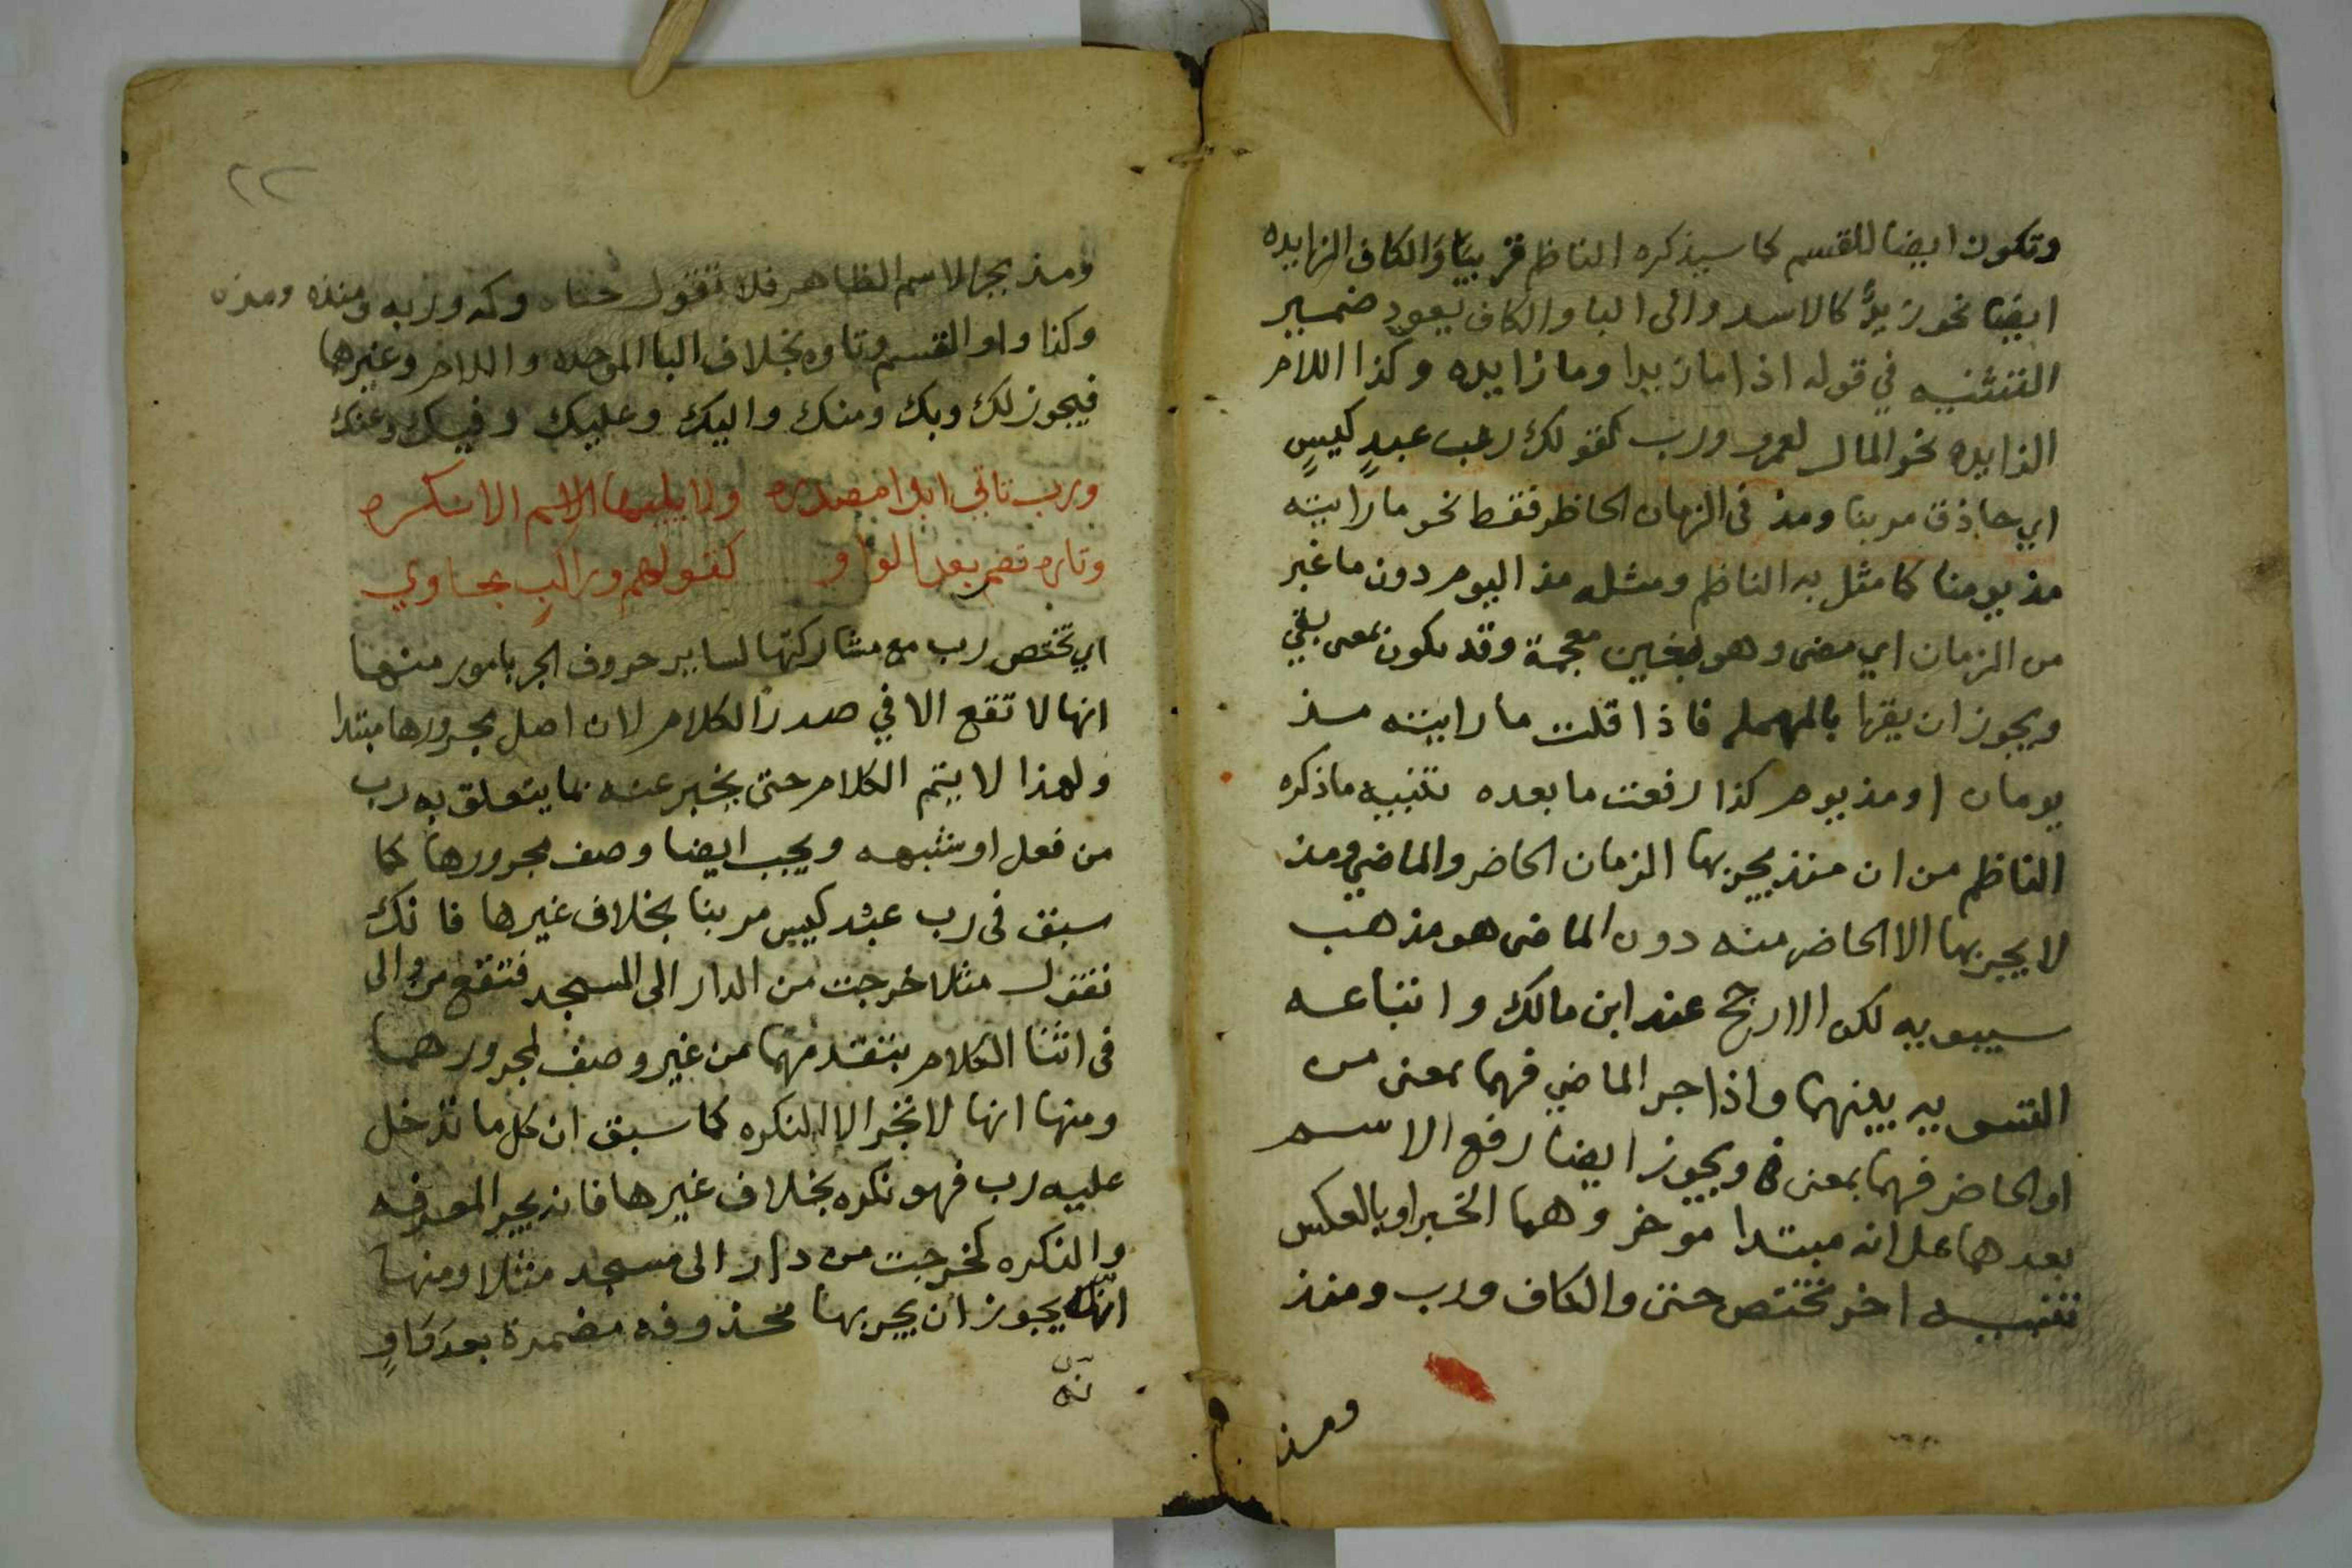 وتكون ايضا للقسم كما سيذكره الناظم قريبا والكاف الزايده
ايضا نحو زيدٌ كالاسد والى البا والكاف يعود ضمير
التثنيه في قوله اذا ما زيدا وما زايده وكذا اللام
الزايده نحو المال لعمرو ورب كقولك رب عبدٍ كيسٍ
اي حاذق مر بنا ومذ فى الزمان الحاظر فقط نحو ما رايته
مذ يومنا كما مثل به الناظم ومثله مذ اليوم دون ما غبر
من الزمان اي مضى وهو بغين معجمة وقد يكون بمعى بقي
ويجوز ان يقرا بالمهمله فاذا قلت ما رايته مذ
يومان او مذ يوم كذا رفعت ما بعده تنبيه ما ذكره
الناظم من ان منذ يجر بها الزمان الحاضر والماضي ومذ
لا يجر بها الا الحاضر منه دون الماضى هو مذهب
سيبويه لكن الارجح عند ابن مالك واتباعه
التسويه بينهما واذا جر الماضي فهما بمعنى من
او الحاضر فهما بمعنى في ويجوز ايضا رفع الاسم
بعدهما على انه مبتدا موخر وهما الخبر او بالعكس
تنبيه اخر تختص حتى والكاف ورب ومنذ
ومذ
٢٢
ومذ بجر الاسم الظاهر فلا تقول حتاه وكه وربه ومنذه ومذه
وكذا واو القسم وتاوه بخلاف البا الموحده واللام وغيرها
فيجوز لك وبك ومنك واليك وعليك وفيك وعنك
ورب تاتي ابدا مصدره ولا يليها الاسم الا نكره
وتاره تضمر بعد الواو كقولهم وراكبٍ بجاوي
اي تختص رب مع مشاركتها لساير حروف الجر بامور منها
انها لا تقع الا في صدر الكلام لان اصل مجرورها مبتدا
ولهذا لا يتم الكلام حتى يخبر عنه بما يتعلق به رب
من فعل او شبهه ويجب ايضا وصف مجرورها كما
سبق فى رب عبد كيس مر بنا بخلاف غيرها فانك
تقول مثلا خرجت من الدار الى المسجد فتقع من والى
فى اثنا الكلام بتقدمهما من غير وصف لمجرورهما
ومنها انها لا تجر الا النكره كما سبق ان كل ما تدخل
عليه رب فهو نكره بخلاف غيرها فانه يجر المعرفه
والنكره كخرجت من دار الى مسجد مثلا ومنها
انه يجوز ان يجر بها محذوفه مضمرة بعد واوٍ